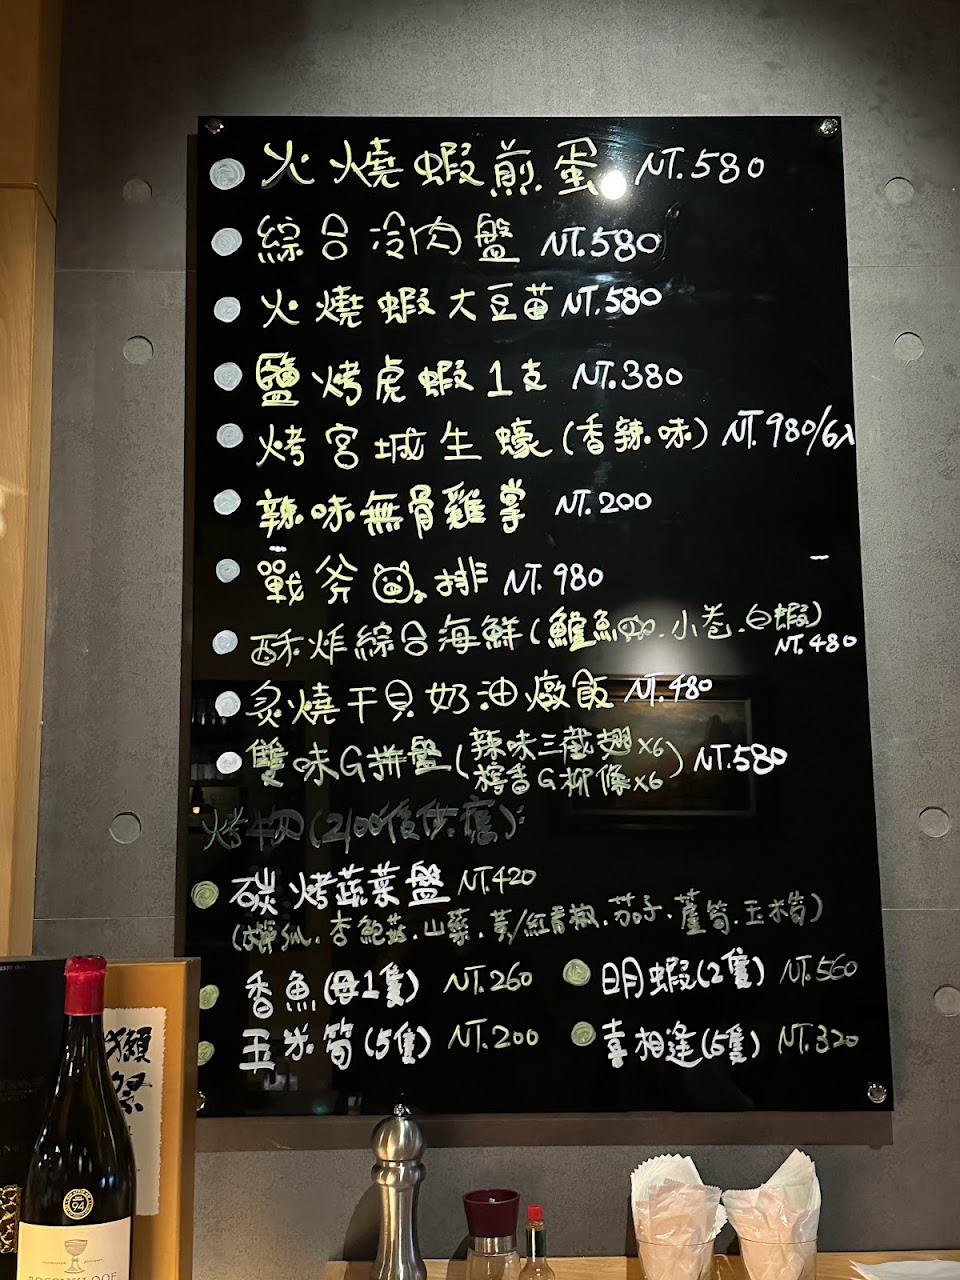 火燒蝦煎蛋 NT.580
綜合冷肉盤 NT.580
火燒蝦大豆苗 NT.580
鹽烤虎蝦1支 NT.380
烤宮城生蠔(香辣味) NT.980/6入
辣味無骨雞掌 NT.200
戰斧 排 NT.980
酥炸綜合海鮮(鱈魚 .小卷.白蝦)
NT.480
炙燒干貝奶油燉飯 NT.480
雙味G拼盤(辣味三截翅x6
檸香G柳條x6) NT.580
烤物(2100後供應):
碳烤蔬菜盤 NT.420
( .杏鮑菇.山藥.黃/紅甜椒.茄子.蘆筍.玉米筍)
香魚(母1隻) NT.260
明蝦(2隻) NT.560
玉米筍(5隻) NT.200
喜相逢(5隻) NT.320
獺祭
94